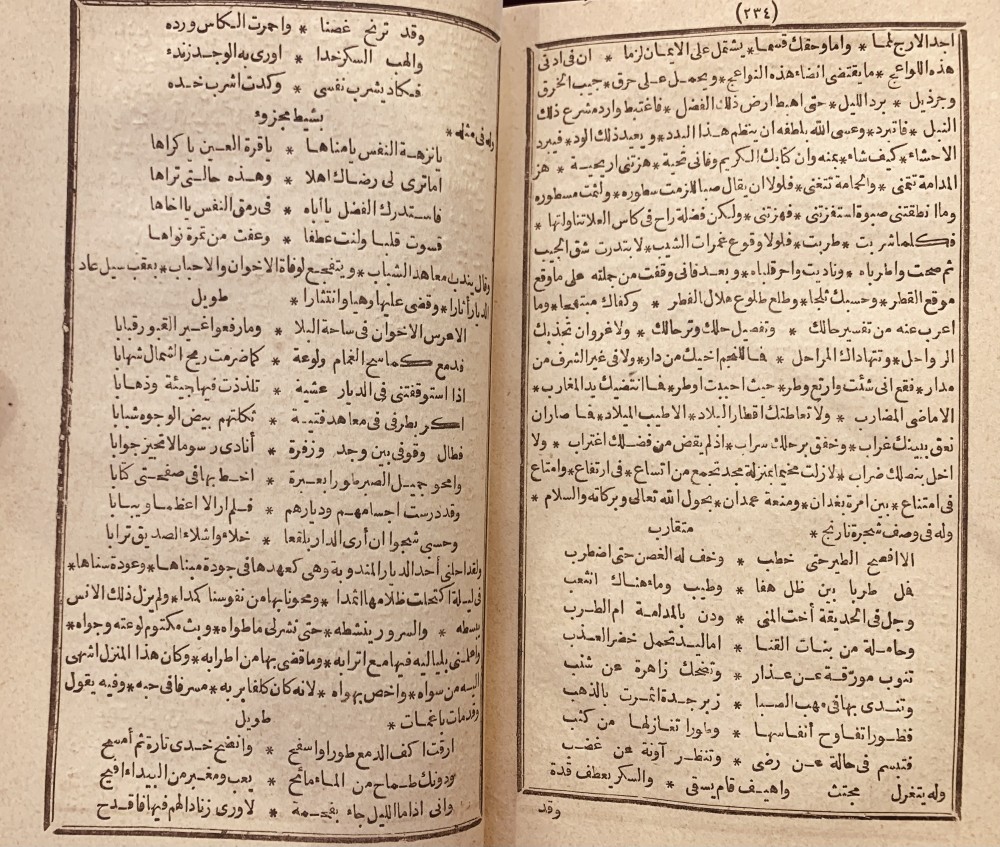 (٢٣٤)
اجد الارج لما * واما وحقك قسما * يشتمل على الايمان لزما * ان فى ادنى
هذه اللواعج * ما يقتضى انضاء هذه النواعج * ويحمل على حرق * جيب الخرق
وجر ذيل * برد الليل * حتى اهبط ارض ذلك الفضل * فاغتبط وارد مشرع ذلك
النبل * فاتبرد * وعسى الله بلطفه ان ينظم هذا البدد * ويعيد ذلك الود * فيبرد
الاحشاء * كيف شاء * بمنه وان كتابك الكريم وفانى تحية * هزتنى اريحية * هز
المدامة تتمنى * والحمامة تتغنى * فلولا ان يقال صبا للزمت سطوره * ولثمت مسطوره
وما انطقتنى صبوة استفزتنى * فهزتنى * ولكن فضلة راح فى كاس العلا تناولتها *
فكلما شربت * طربت * فلولا وقوع غمرات الشيب * لابتدرت شق الجيب
ثم صحت واطرباه * وناديت واحر قلباه * وبعد فانى وقفت من جملته على ما وقع
موقع القطر * وحسبك ثلجا * وطلع طلوع هلال الفطر * وكفاك مبتهجا * وما
اعرب عنه من تفسير حالك * وتفصيل حلك وترحالك * ولا غرو ان تجذبك
الرواحل * وتتهاداك المراحل * فما للنجم اخيك من دار * ولا فى غير الشرف من
مدار * فقع انى شئت وارتع وطر * حيث احببت اوطر * فما انتضيك يد المغارب *
الا ماضى المضارب * ولا تعاطتك اقطار البلاد * الا طيب الميلاد * فما صار ان
نعق ببينك غراب * وخفق برحلك سراب * اذ لم يقض من فضلك اغتراب * ولا
اخل بنصلك ضراب * لازلت مخيما بمنزلة مجد تجمع من اتساع * فى ارتفاع * وامتاع
فى امتناع * بين امرة بغدان * ومنعة عمدان * بحول الله تعالى وبركاته والسلام *
وله فى وصف شجرة نارنج * متقارب
الا افصح الطير حتى خطب * وخف له الغصن حتى اضطرب
فمل طربا بين ظل هفا * وطيب وماء هناك انثعب
وجل فى الحديقة أخت المنى * ودن بالمدامة ام الطرب
وحاملة من بنات القنا * اماليد تحمل خضر العذب
تنوب مورقة عن عذار * وتضحك زاهرة عن شنب
وتندى بها فى مهب الصبا * زبرجدة اثمرت بالذهب
فطورا تفاوح أنفاسها * وطورا تغازلها من كثب
فتبسم فى حالة عن رضى * وتنظر آونة عن غضب
وله يتغزل مجتث واهيف قام يسقى * والسكر يعطف قده
وقد
وقد ترنح غصنا * واحمرت الكاس ورده
والهب السكر خدا * اورى به الوجد زنده
فكاد يشرب نفسى * وكدت اشرب خده
وله فى مثله * بسيط مجزوء
يا نزهة النفس يا مناها * يا قرة العين يا كراها
اما ترى لى رضاك اهلا * وهذه حالتى تراها
فاستدرك الفضل يا أباه * فى رمق النفس يا اخاها
قسوت قلبا ولنت عطفا * وعفت من تمرة نواها
وقال يندب معاهد الشباب * ويتفجع لوفاة الاخوان والاحباب * بعقب سيل عاد
الديار أثارا * وقضى عليها وهيا وانتثارا * طويل
الا عرس الاخوان فى ساحة البلا * وما رفعوا غير القبور قبابا
فدمع كما سح الغمام ولوعة * كما ضرمت ريح الشمال شهابا
اذا استوقفتنى فى الديار عشية * تلذذت فيها جيئة وذهابا
اكر بطرفى فى معاهد فتية * ثكلتهم بيض الوجوه شبابا
فطال وقوفى بين وجد وزفرة * أنادى رسوما لا تحير جوابا
وامحو جميل الصبر طورا بعبرة * اخط بها فى صفحتى كتابا
وقد درست اجسامهم وديارهم * فلم ار الا اعظما ويبابا
وحسبى شجوا ان أرى الدار بلقعا * خلاء واشلاء الصديق ترابا
ولقد احلنى أحد الديار المندوبة وهى كعهدها فى جودة مبناها * وعودة سناها *
فى ليلة اكتحلت ظلامها اثمدا * ومحونا بها من نفوسنا كمدا * ولم يزل ذلك الانس
يبسطه * والسرور ينشطه * حتى نشر لى ما طواه * وبث مكتوم لوعته وجواه *
واعلمنى بلياليه فيها مع اترابه * وما قضى بها من اطرابه * وكان هذا المنزل اشهى
اليه من سواه * واخص بهواه * لانه كان كلفا بربه * مسرفا فى حبه * وفيه يقول
وقد مات باغمات * طويل
ارقت اكف الدمع طورا واسفح * وانضح خدى تارة ثم أمسح
ودونك طماح من الماء مائح * يعب ومغبر من البيداء افيح
وانى اذا ما الليل جاء بفحمة * لاورى زناد الهم فيها فاقدح